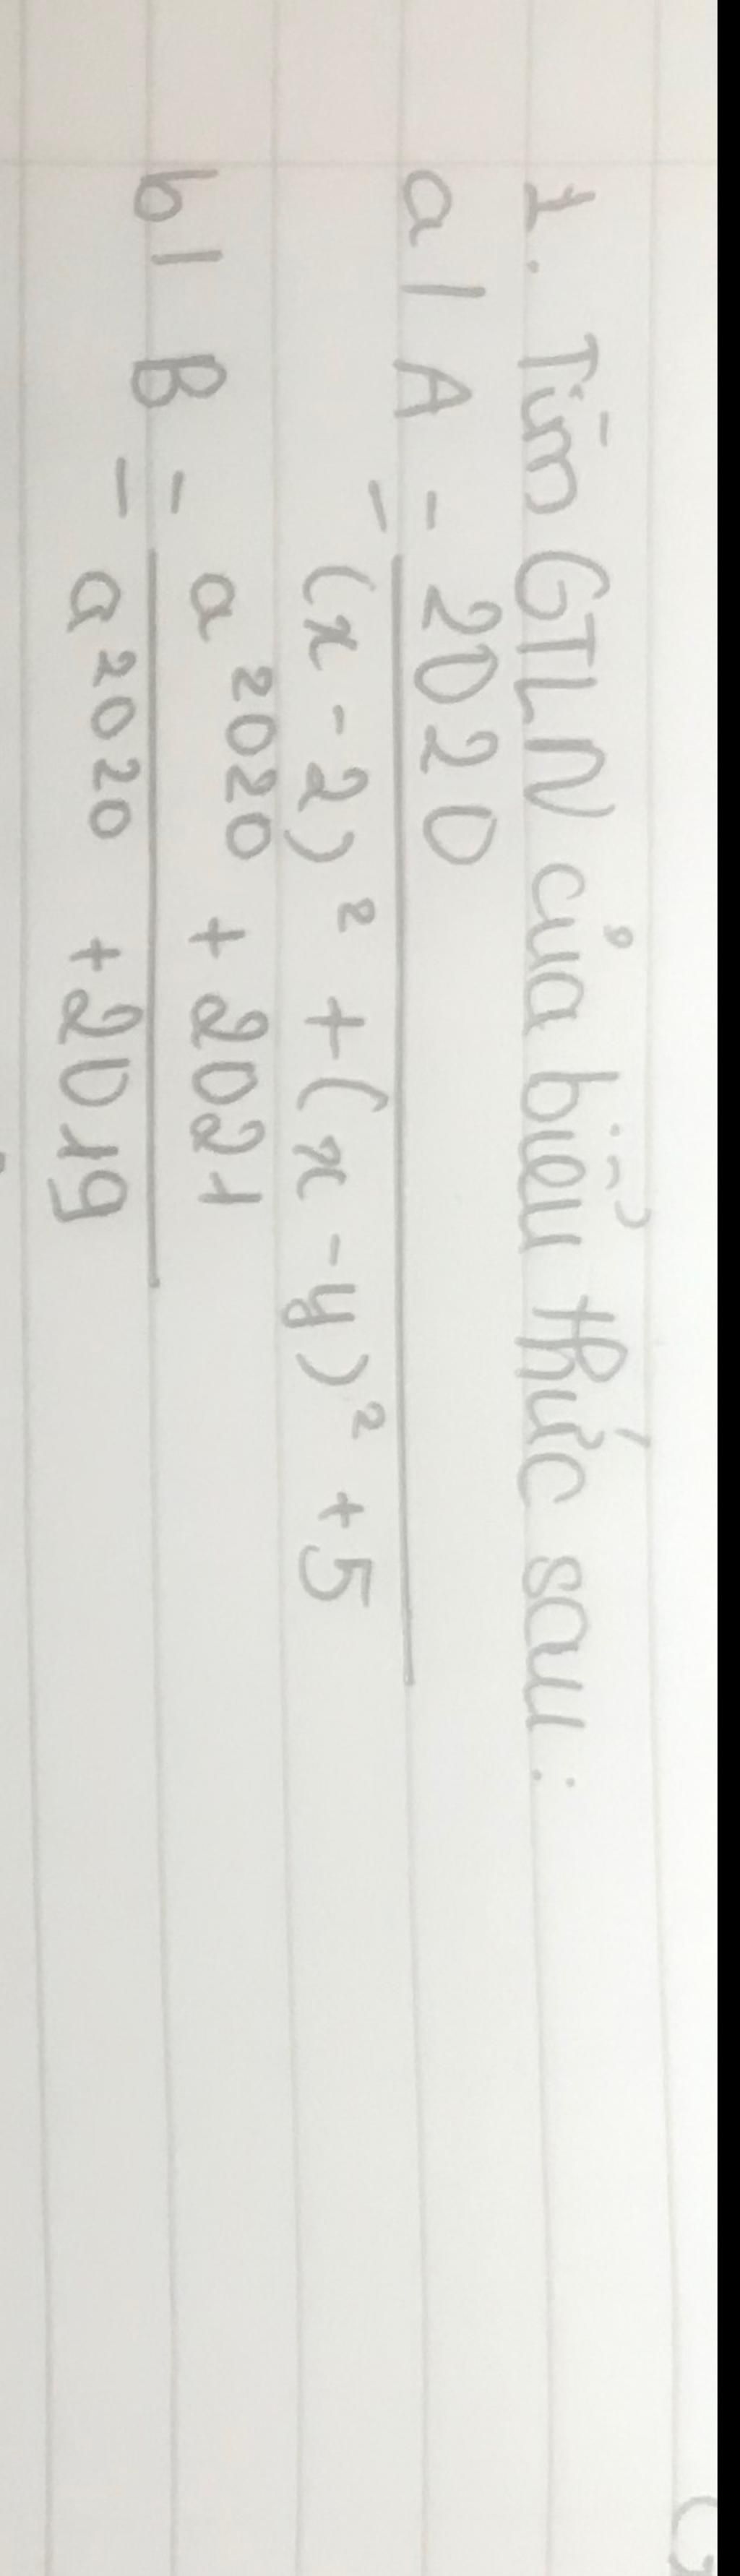 1. Tìm GTLN của biểu thức sau:
a| A = 2020 / (x - 2)² + (x - y)² + 5
b| B = a²⁰²⁰ + 2021 / a²⁰²⁰ + 2019